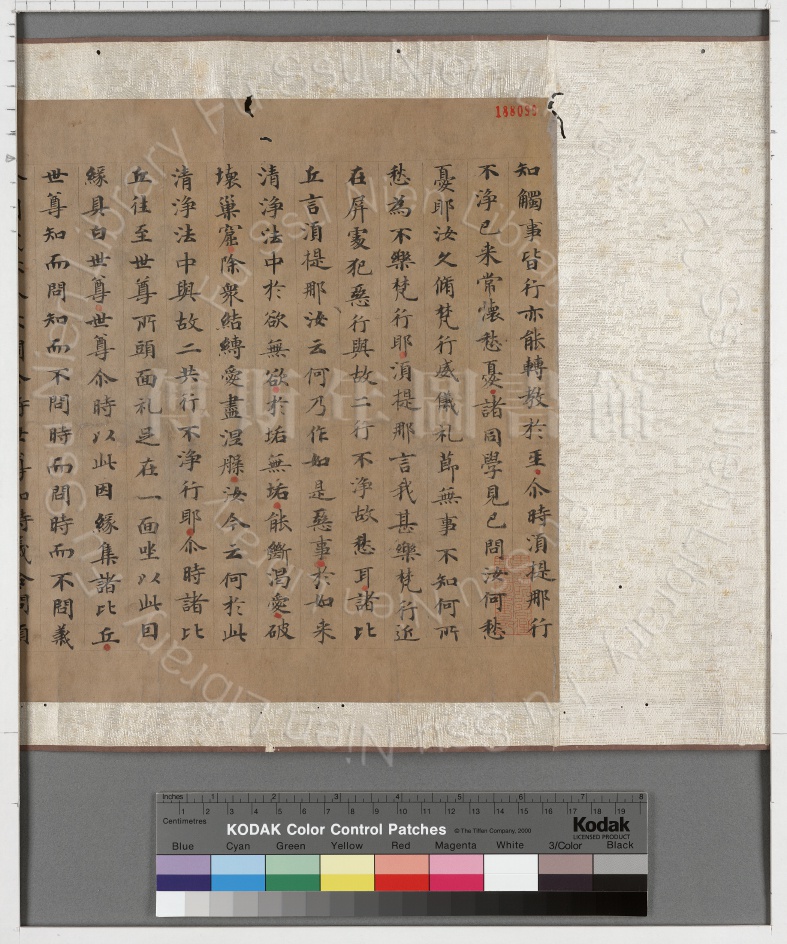 188095
知觸事皆行亦能轉教於王尒時湏提那行
不淨已来常懷愁憂諸同學見已問汝何愁
憂耶汝久脩梵行威儀礼莭無事不知何所
愁為不樂梵行耶湏提那言我甚樂梵行近
在屏䖏犯惡行與故二行不淨故愁耳諸比
丘言湏提那汝云何乃作如是惡事於如来
清淨法中於欲無欲於垢無垢能斷渴愛破
壞巢窟除衆結縛愛盡涅槃汝今云何於此
清淨法中與故二共行不淨行耶尒時諸比
丘往至世尊所頭面礼足在一面坐以此因
緣具白世尊世尊尒時以此因緣集諸比丘
世尊知而問知而不問時而問時而不問義
Fu Ssu Nien Library
傅斯年圖書館
Inches 1 2 3 4 5 6 7 8
Centimetres 1 2 3 4 5 6 7 8 9 10 11 12 13 14 15 16 17 18 19
KODAK Color Control Patches © The Tiffen Company, 2000 Kodak
LICENSED PRODUCT
Blue Cyan Green Yellow Red Magenta White 3/Color Black